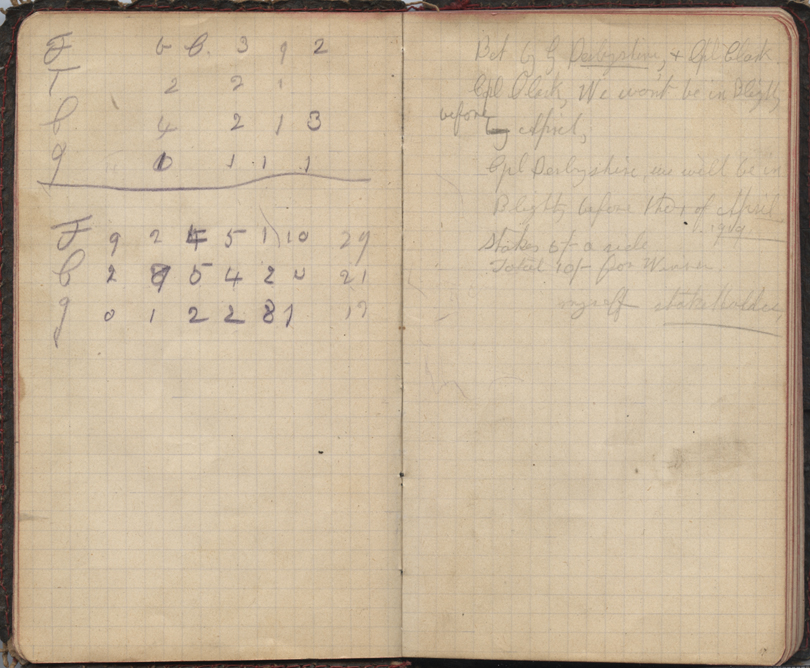 F 6 8. 3 9 2
T 2 2 1
C. 4 2 1 3
G 1 1 1
F 9 2 5 1 10 29
C 2 5 4 2 0 21
G 0 1 2 2 8 1
Bet by G Derbyshire, & Cpl Clark
Cpl Clark, We wont be in Blighty
before April,
Cpl Derbyshire, we will be in
Blighty before the 1 of April
1919
Stakes 5/- a side
Total 10/- for Winner.
myself stake holder,